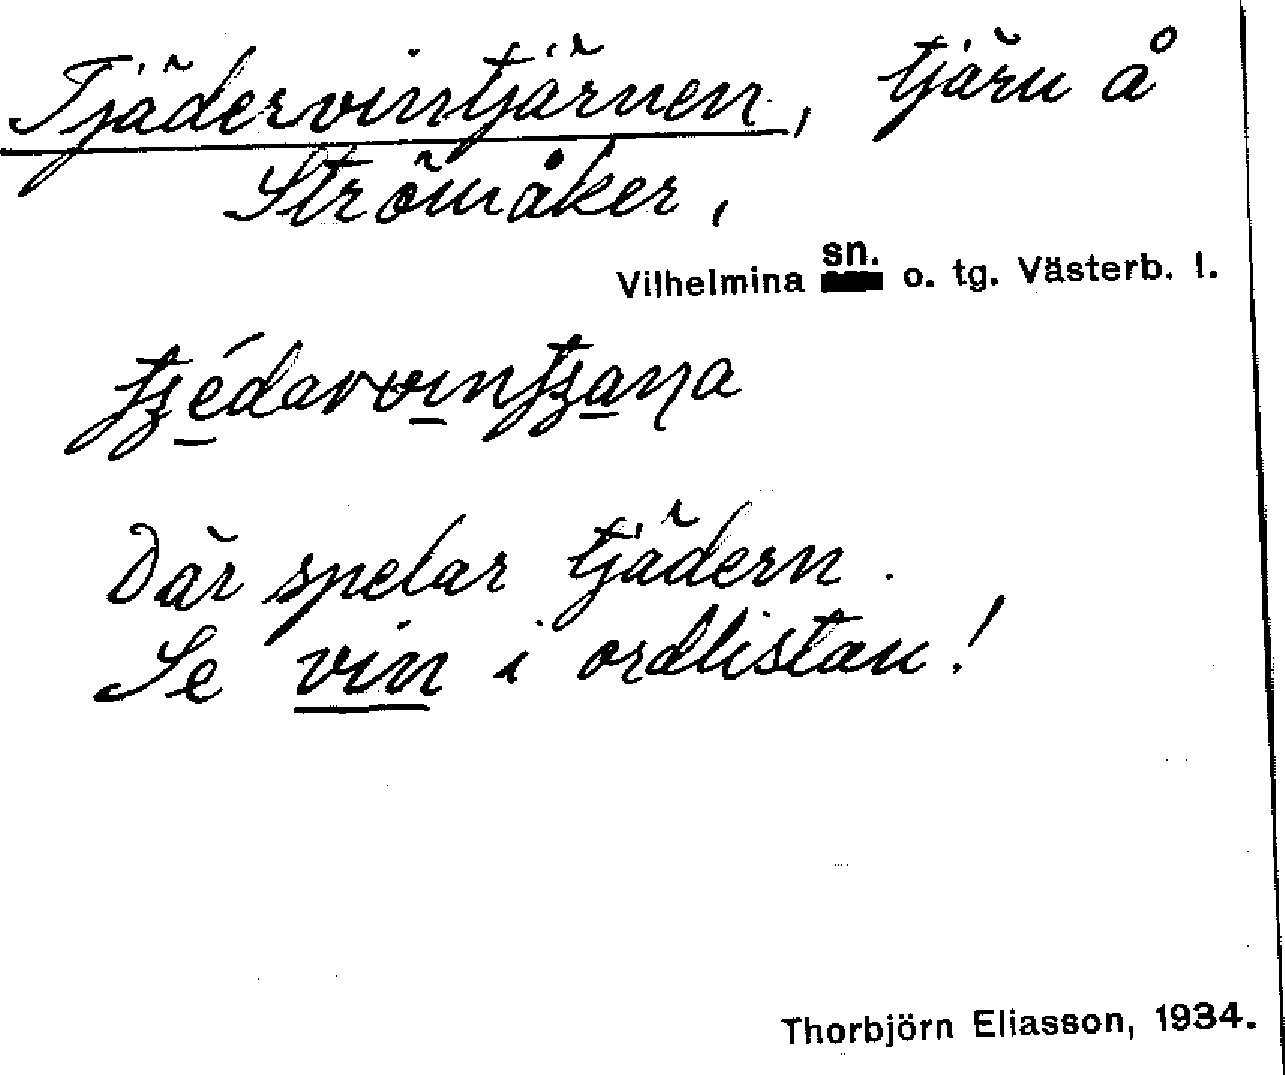 Tjädervintjärnen, tjärn å
Strömåker,
Vilhelmina sn. o. tg. Västerb. l.
Där spelar tjädern.
Se vin i ordlistan!
Thorbjörn Eliasson, 1934.